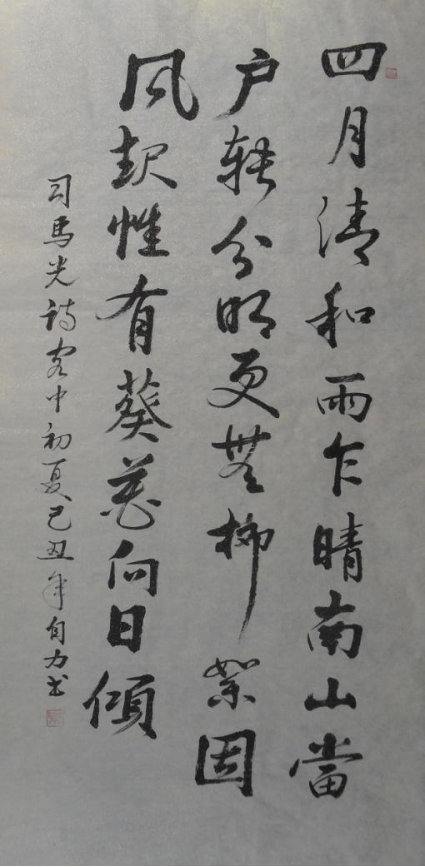 四月清和雨乍晴南山當
户转分明更無柳絮因
风起惟有葵花向日傾
司馬光詩客中初夏己丑年自力书